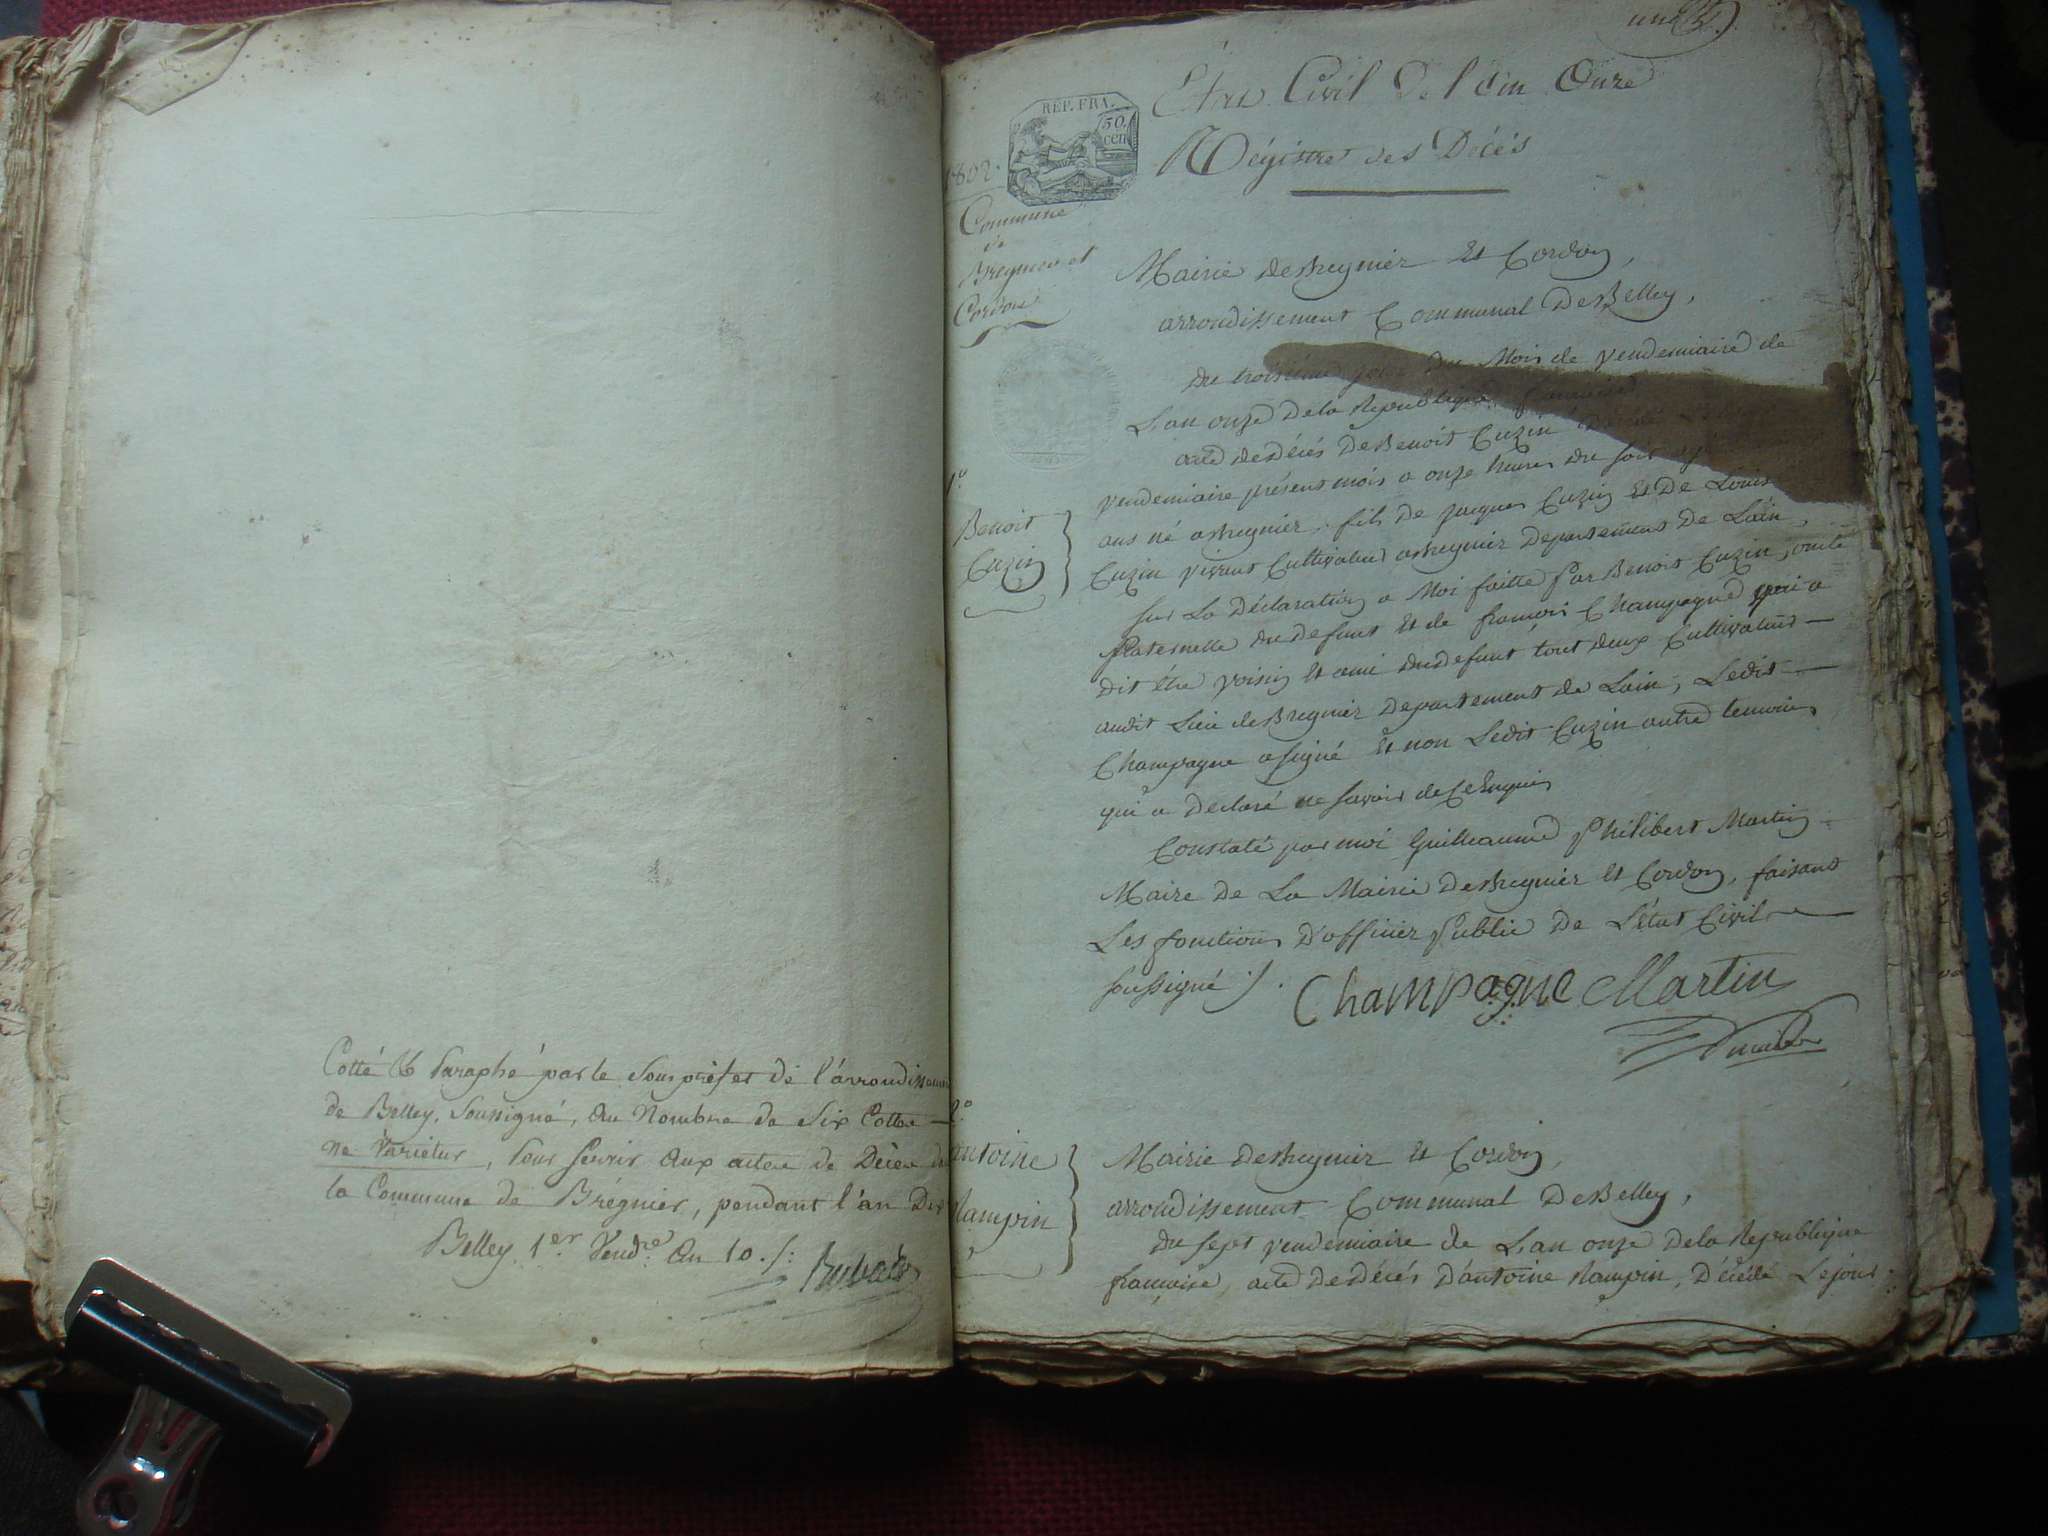 Cotté & Paraphé par le Sousprefet de l'arrondissement
de Belley, Soussigné, au Nombre de Six Cottes
ne Varietur, Pour servir aux actes de Décès de
la Commune de Brégnier, pendant l'an Dix
Belley, 1er Vendre an 10
Etat Civil de l'an Onze
Régistre des Décés
REP. FRA.
50
cen
1802.
Commune
de
Bregnier et
Cordon
Mairie de Bregnier Et Cordon,
arrondissement Communal De Belley,
du troisième jour du Mois de vendemiaire de
L'an onze De la Republique francaise
acte de décés De Benoit Cuzin décédé
vendemiaire présent mois a onze heures du soir agé
ans né a Bregnier, fils de jacques Cuzin Et De Louise
Cuzin vivant Cultivateur a Bregnier Departement De L'ain,
1º
Benoit
Cuzin
sur La Déclaration a Moi faitte Par Benoit Cuzin, oncle
Paternelle du defunt Et de françois Champagne qui a
dit être voisin Et ami du defunt tout deux Cultivateurs
audit Lieu de Bregnier Departement de L'ain, Ledit
Champagne a signé Et non Ledit Cuzin autre temoin
qui a Déclaré ne savoir de Ce Enquis
Constaté par moi Guillaume Philibert Martin
Maire de La Mairie De Bregnier Et Cordon, faisant
Les fonctions D'officier Public De L'état Civil
soussigné ./.
Champagne Martin
2º
antoine
Rampin
Mairie De Bregnier Et Cordon,
arrondissement Communal De Belley,
du sept vendemiaire de L'an onze De la Republique
francaise, acte De décés D'antoine Rampin, Décédé Le jour